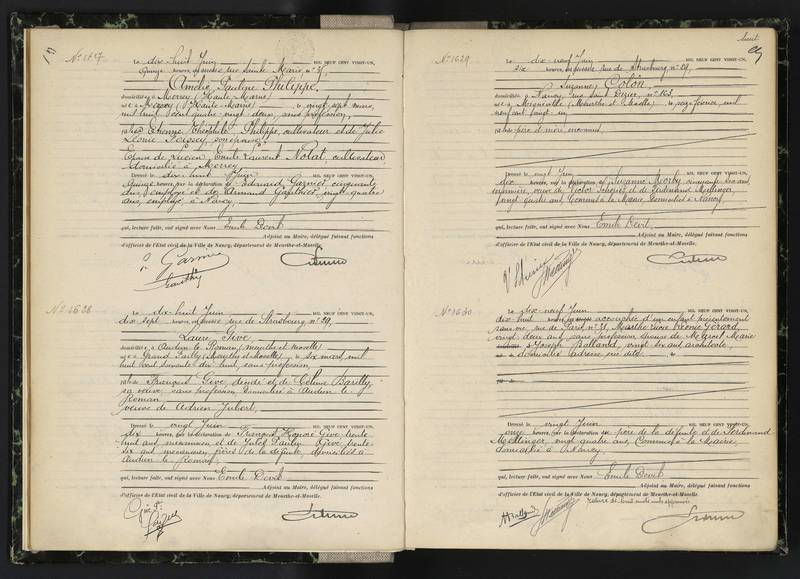 Le dix huit Juin MIL NEUF CENT VINGT-UN,
quinze heures, est décédée rue Sainte Marie, n°
Amélie Pauline Philippe,
domiciliée à Morvey (Haute Marne)
née à (Haute-Marne) le vingt sept mars,
mil huit cent quatre vingt deux, sans profession,
fille de Etienne Théophile Philippe, cultivateur et de Julie
Léonie son épouse
Epouse de Lucien Emile Laurent Nolat, cultivateur
domicilié à
Dressé le dix huit Juin MIL NEUF CENT VINGT-UN,
quinze heures, sur la déclaration de Edouard Garnier cinquante
ans, employé et de Armand Gauthier, vingt quatre
ans, employé, à Nancy.
qui, lecture faite, ont signé avec Nous Emile Devit
Adjoint au Maire, délégué faisant fonctions
d'officier de l'Etat civil de la Ville de Nancy, département de Meurthe-et-Moselle.
Garnier
Gauthier
N° 1628
Le dix huit Juin MIL NEUF CENT VINGT-UN,
dix sept heures, est décédée rue de Strasbourg n° 29,
Laure Gève
domiciliée à Audun le Roman (Meurthe et Moselle)
née à Grand Failly (Meurthe et Moselle), le six mars, mil
huit cent soixante dix huit, sans profession,
fille de François Gève décédé et de Célina Barilly,
sa veuve, sans profession domiciliée à Audun le
Roman
veuve de Adrien Jubert.
Dressé le vingt Juin MIL NEUF CENT VINGT-UN,
dix heures, sur la déclaration de François Honoré Gève trente
huit ans, mécanicien et de Jules Paulin Gève trente
six ans mécanicien, frères de la défunte, domiciliés à
Audun le Roman
qui, lecture faite, ont signé avec Nous Emile Devit
Adjoint au Maire, délégué faisant fonctions
d'officier de l'Etat civil de la Ville de Nancy, département de Meurthe-et-Moselle.
huit
N° 1629
Le dix neuf Juin MIL NEUF CENT VINGT-UN,
six heures, est décédée rue de Strasbourg n° 29,
Suzanne Colon
domiciliée à Nancy, rue Saint Dizier, n° 103
née à (Meurthe et Moselle) le seize février, mil
neuf cent vingt un
fille de père et mère inconnus
Dressé le vingt Juin MIL NEUF CENT VINGT-UN,
dix heures, sur la déclaration de Suzanne cinquante six ans,
infirmière, veuve de Victor et de Ferdinand Mettinger,
vingt quatre ans, Commis à la Mairie, domiciliés à Nancy
qui, lecture faite, ont signé avec Nous Emile Devit
Adjoint au Maire, délégué faisant fonctions
d'officier de l'Etat civil de la Ville de Nancy, département de Meurthe-et-Moselle.
N° 1630
Le dix neuf Juin MIL NEUF CENT VINGT-UN,
dix huit heures, est accouchée d'un enfant présentement
sans vie, rue de n° 31, Marthe Léonie Gérard,
vingt deux ans, sans profession, épouse de Marcel Marie
Joseph Rolland, vingt six ans, architecte,
domiciliés adresse que dite
Dressé le vingt Juin MIL NEUF CENT VINGT-UN,
onze heures, sur la déclaration du père de la défunte et de Ferdinand
Mettinger, vingt quatre ans, Commis à la Mairie,
domicilié à Nancy.
qui, lecture faite, ont signé avec Nous Emile Devit
Adjoint au Maire, délégué faisant fonctions
d'officier de l'Etat civil de la Ville de Nancy, département de Meurthe-et-Moselle.